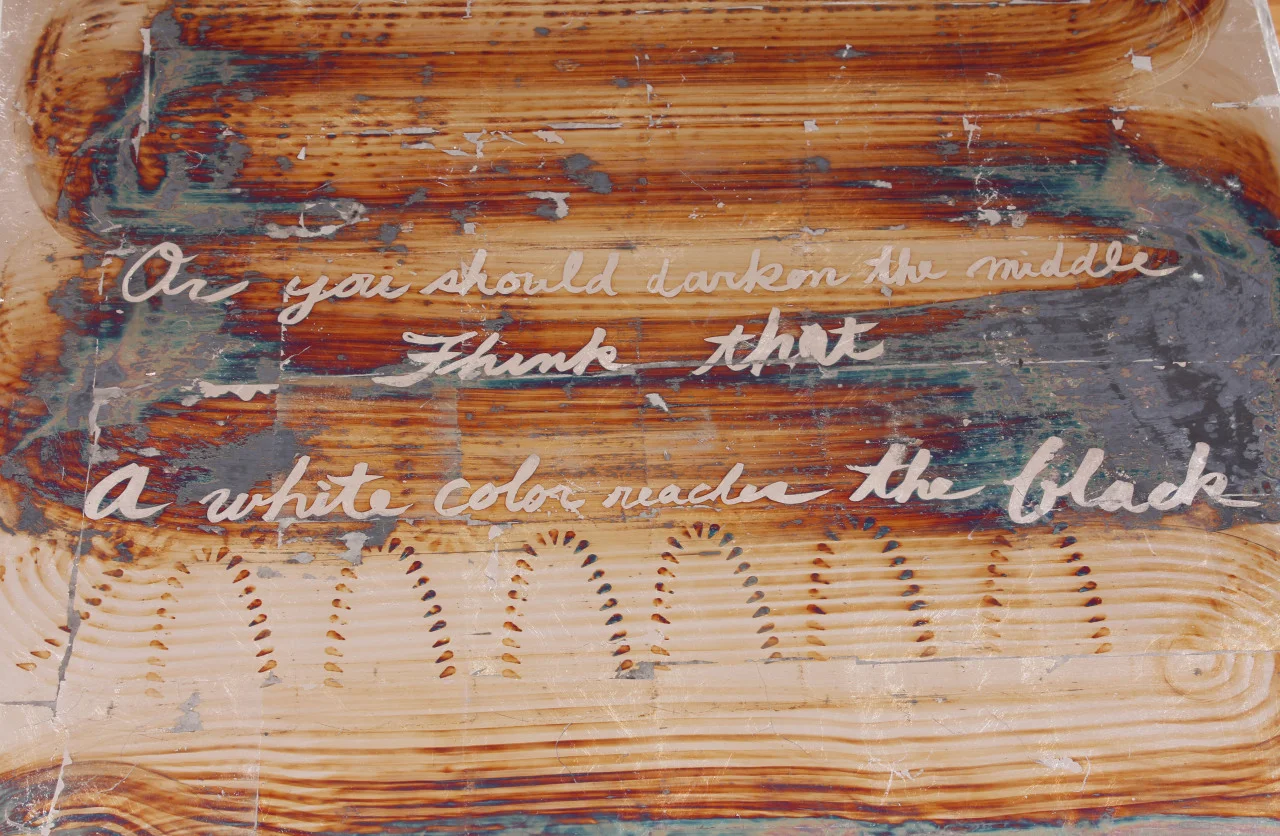 Or you should darken the middle
Think that
A white color reaches the black